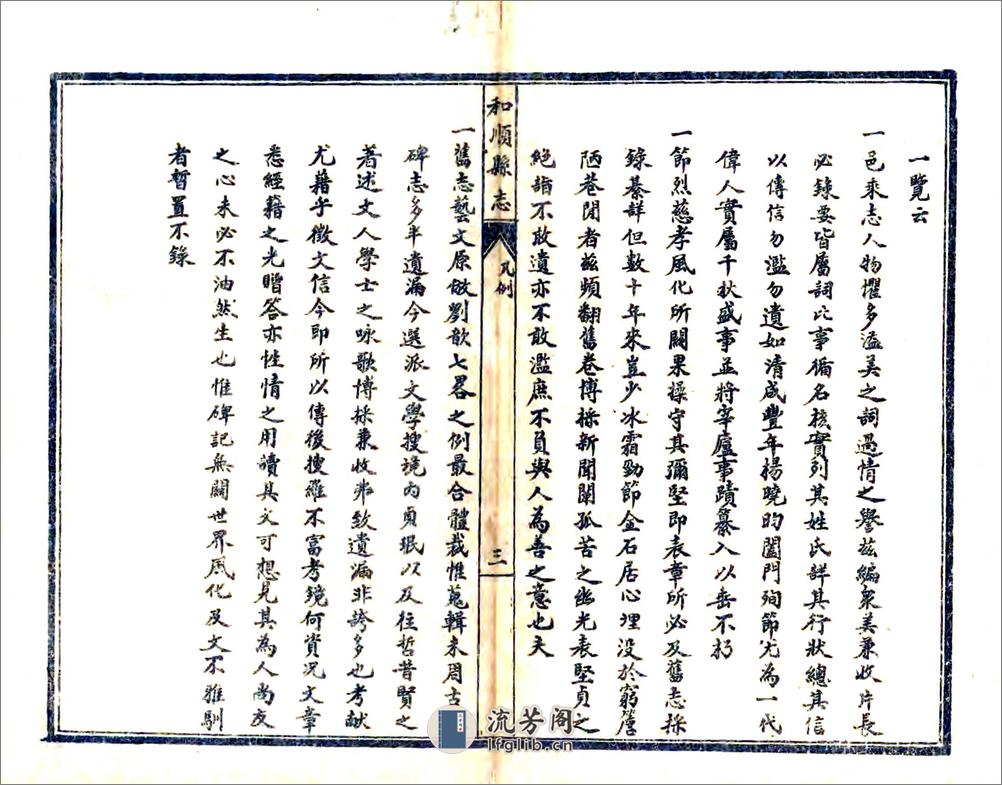 一覽云
一邑乘志人物懼多溢美之詞過情之譽茲編衆美兼收片長
必錄要皆屬詞比事循名核實列其姓氏詳其行狀總其信
以傳信勿濫勿遺如清咸豐年楊曉昀闔門殉節尤為一代
偉人實屬千秋盛事並將宰廬事蹟纂入以垂不朽
一節烈慈孝風化所關果操守其彌堅即表章所必及舊志採
錄綦詳但數十年來豈少冰霜勁節金石居心埋没於窮簷
陋巷閒者茲頻翻舊卷博採新聞闡孤苦之幽光表堅貞之
絕詣不敢遺亦不敢濫庶不負與人為善之意也夫
和順縣志
凡例
三
一舊志藝文原倣劉歆七畧之例最合體裁惟蒐輯未周古
碑志多半遺漏今選派文學搜境內貞珉以及往哲昔賢之
著述文人學士之咏歌博採兼收弗致遺漏非誇多也考獻
尤藉乎徵文信今即所以傳後搜羅不富考鏡何資况文章
悉經籍之光贈答亦性情之用讀其文可想見其為人尚友
之心未必不油然生也惟碑記無關世界風化及文不雅馴
者暫置不錄
流芳阁
lfglib.cn